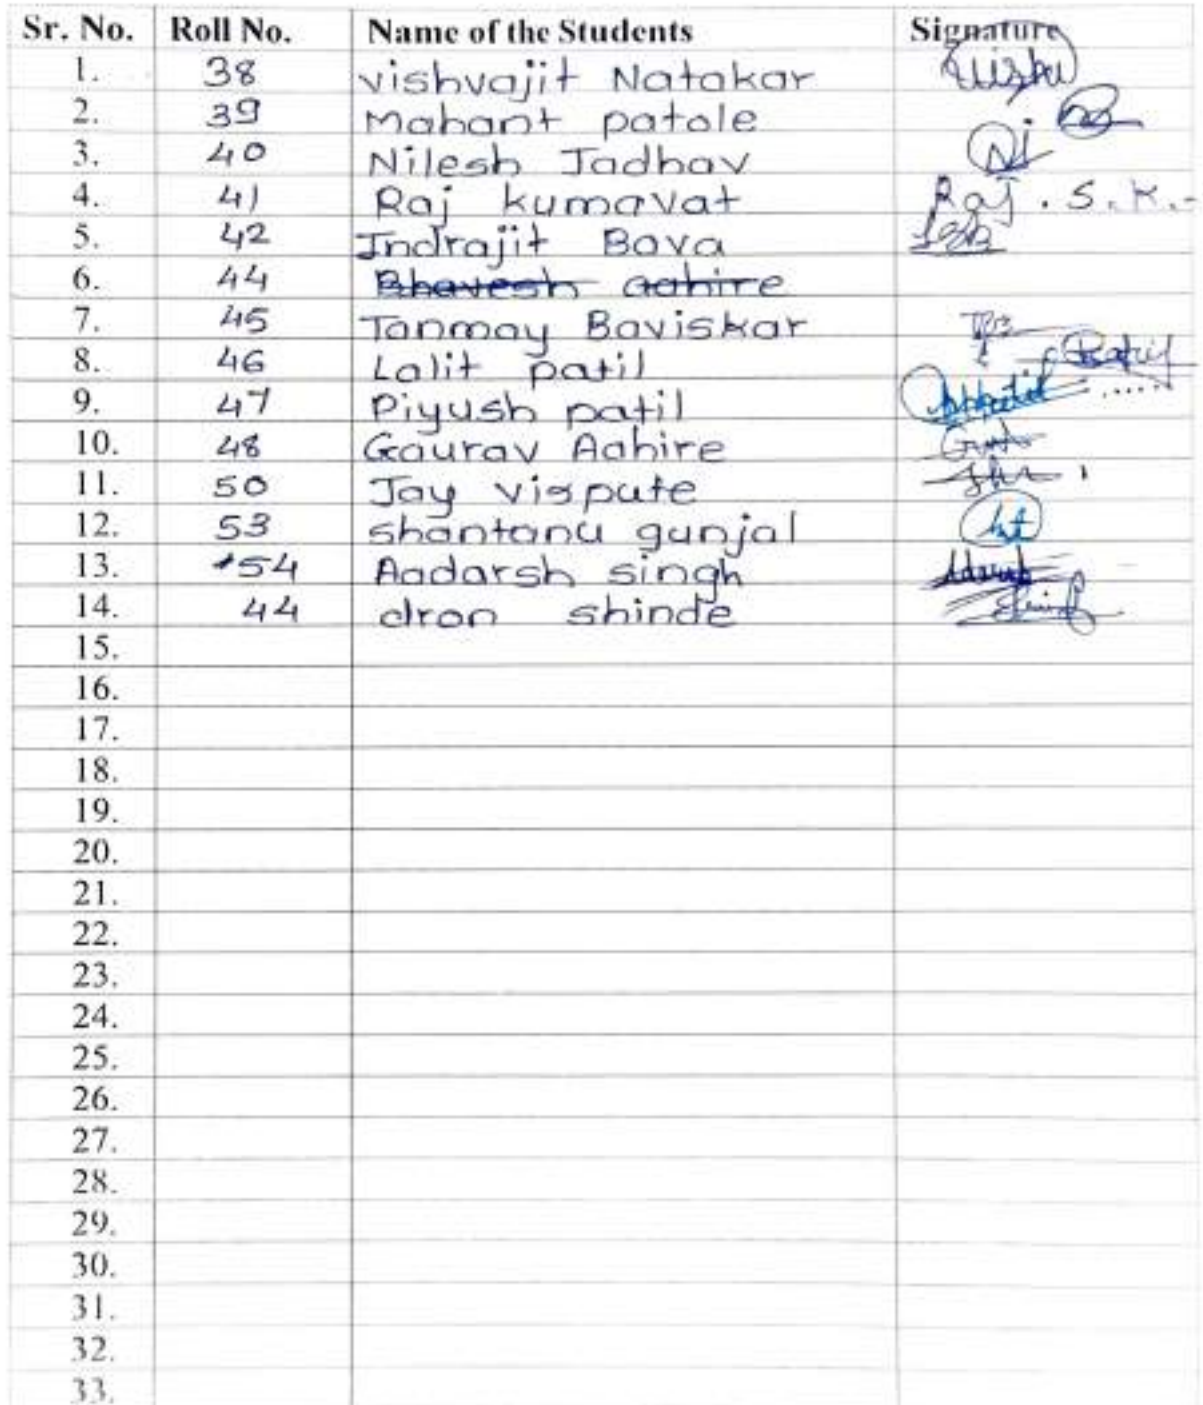 Sr. No. Roll No. Name of the Students Signature
1. 38 vishvajit Natakar Vishu
2. 39 Mahant patole
3. 40 Nilesh Jadhav NJ
4. 41 Raj kumavat Raj . S. K.
5. 42 Indrajit Bava
6. 44 Bhavesh aahire
7. 45 Tanmay Baviskar
8. 46 Lalit patil
9. 47 Piyush patil
10. 48 Gaurav Aahire
11. 50 Jay vispute
12. 53 shantanu gunjal
13. 54 Aadarsh singh Adarsh
14. 44 dron shinde
15.
16.
17.
18.
19.
20.
21.
22.
23.
24.
25.
26.
27.
28.
29.
30.
31.
32.
33.